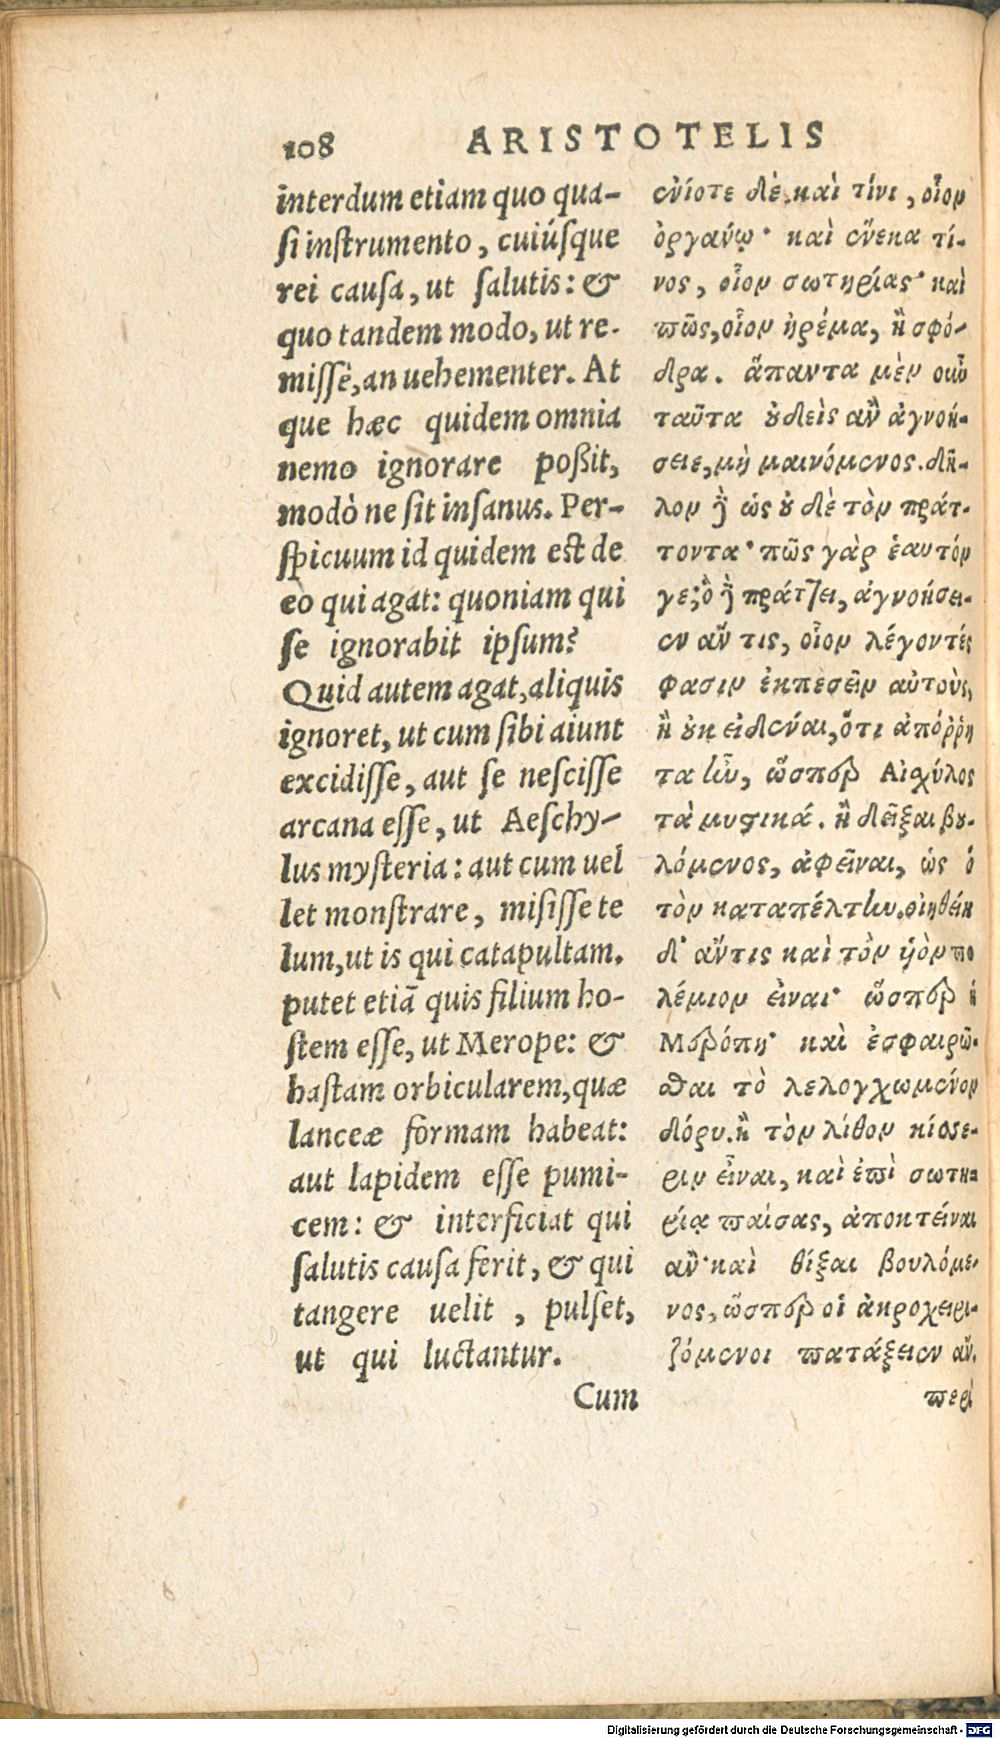 108 ARISTOTELIS
interdum etiam quo qua-
si instrumento, cuiúsque
rei causa, ut salutis: &
quo tandem modo, ut re-
missè, an uehementer. At
que hæc quidem omnia
nemo ignorare poßit,
modò ne sit insanus. Per-
spicuum id quidem est de
eo qui agat: quoniam qui
se ignorabit ipsum?
Quid autem agat, aliquis
ignoret, ut cum sibi aiunt
excidisse, aut se nescisse
arcana esse, ut Aeschy-
lus mysteria: aut cum uel
let monstrare, misisse te
lum, ut is qui catapultam.
putet etiã quis filium ho-
stem esse, ut Merope: &
hastam orbicularem, quæ
lanceæ formam habeat:
aut lapidem esse pumi-
cem: & interficiat qui
salutis causa ferit, & qui
tangere uelit, pulset,
ut qui luctantur.
Cum
ἐνίοτε δὲ καὶ τίνι, οἷον
ὀργάνῳ· καὶ ἕνεκα τί-
νος, οἷον σωτηρίας· καὶ
πῶς, οἷον ἠρέμα, ἢ σφό-
δρα. ἅπαντα μὲν οὖν
ταῦτα ȣδεὶς ἂν ἀγνοή-
σειε, μὴ μαινόμενος. δῆ-
λον δ ὡς ȣδὲ τὸν πράτ-
τοντα· πῶς γὰρ ἑαυτόν
γε; ὃ δ πράττει, ἀγνοήσει-
εν ἄν τις, οἷον λέγοντές
φασιν ἐκπεσεῖν αὐτοὺς,
ἢ ȣκ εἰδέναι, ὅτι ἀπόῤῥη
τα ἦν, ὥσπερ Αἰσχύλος
τὰ μυστικά. ἢ δεῖξαι βȣ-
λόμενος, ἀφεῖναι, ὡς ὁ
τὸν καταπέλτην. οἰηθείη
δ' ἄν τις καὶ τὸν ὑὸν πο
λέμιον εἶναι· ὥσπερ ἡ
Μερόπη· καὶ ἐσφαιρῶ-
σθαι τὸ λελογχωμένον
δόρυ. ἢ τὸν λίθον κίσσε-
ριν εἶναι, καὶ ἐπὶ σωτη-
ρίᾳ παίσας, ἀποκτείναι
ἄν· καὶ θίξαι βουλόμε-
νος, ὥσπερ οἱ ἀκροχειρι-
ζόμενοι πατάξειεν ἄν.
περὶ
Digitalisierung gefördert durch die Deutsche Forschungsgemeinschaft - DFG